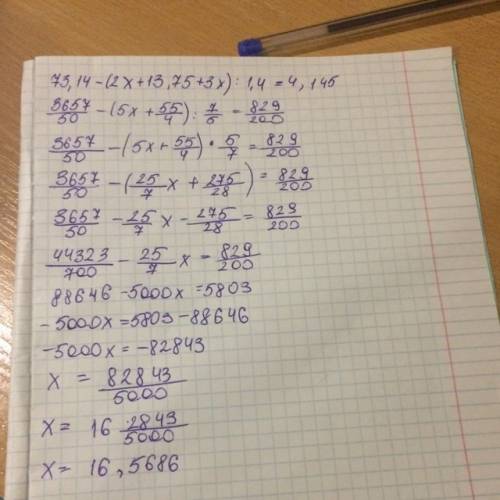 73,14-(2x+13,75+3x):1,4=4,145
3657/50-(5x+55/4):7/5=829/200
3657/50-(5x+55/4)•5/7=829/200
3657/50-(25/7x+275/28)=829/200
3657/50-25/7x-275/28=829/200
44323/700-25/7x=829/200
88646-5000x=5803
-5000x=5803-88646
-5000x=-82843
x=82843/5000
x=16 2843/5000
x=16,5686